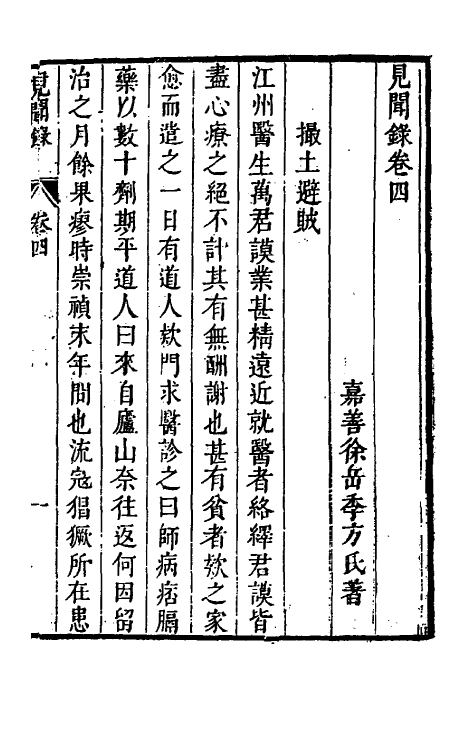 見聞錄卷四
嘉善徐岳季方氏著
撮土避賊
江州醫生萬君謨業甚精遠近就醫者絡繹君謨皆
盡心療之絕不計其有無酬謝也甚有貧者欵之家
愈而遣之一日有道人欵門求醫診之曰師病痞膈
藥以數十劑期平道人曰來自廬山奈往返何因留
治之月餘果瘳時崇禎末年間也流寇猖獗所在患
見聞錄
卷四
一